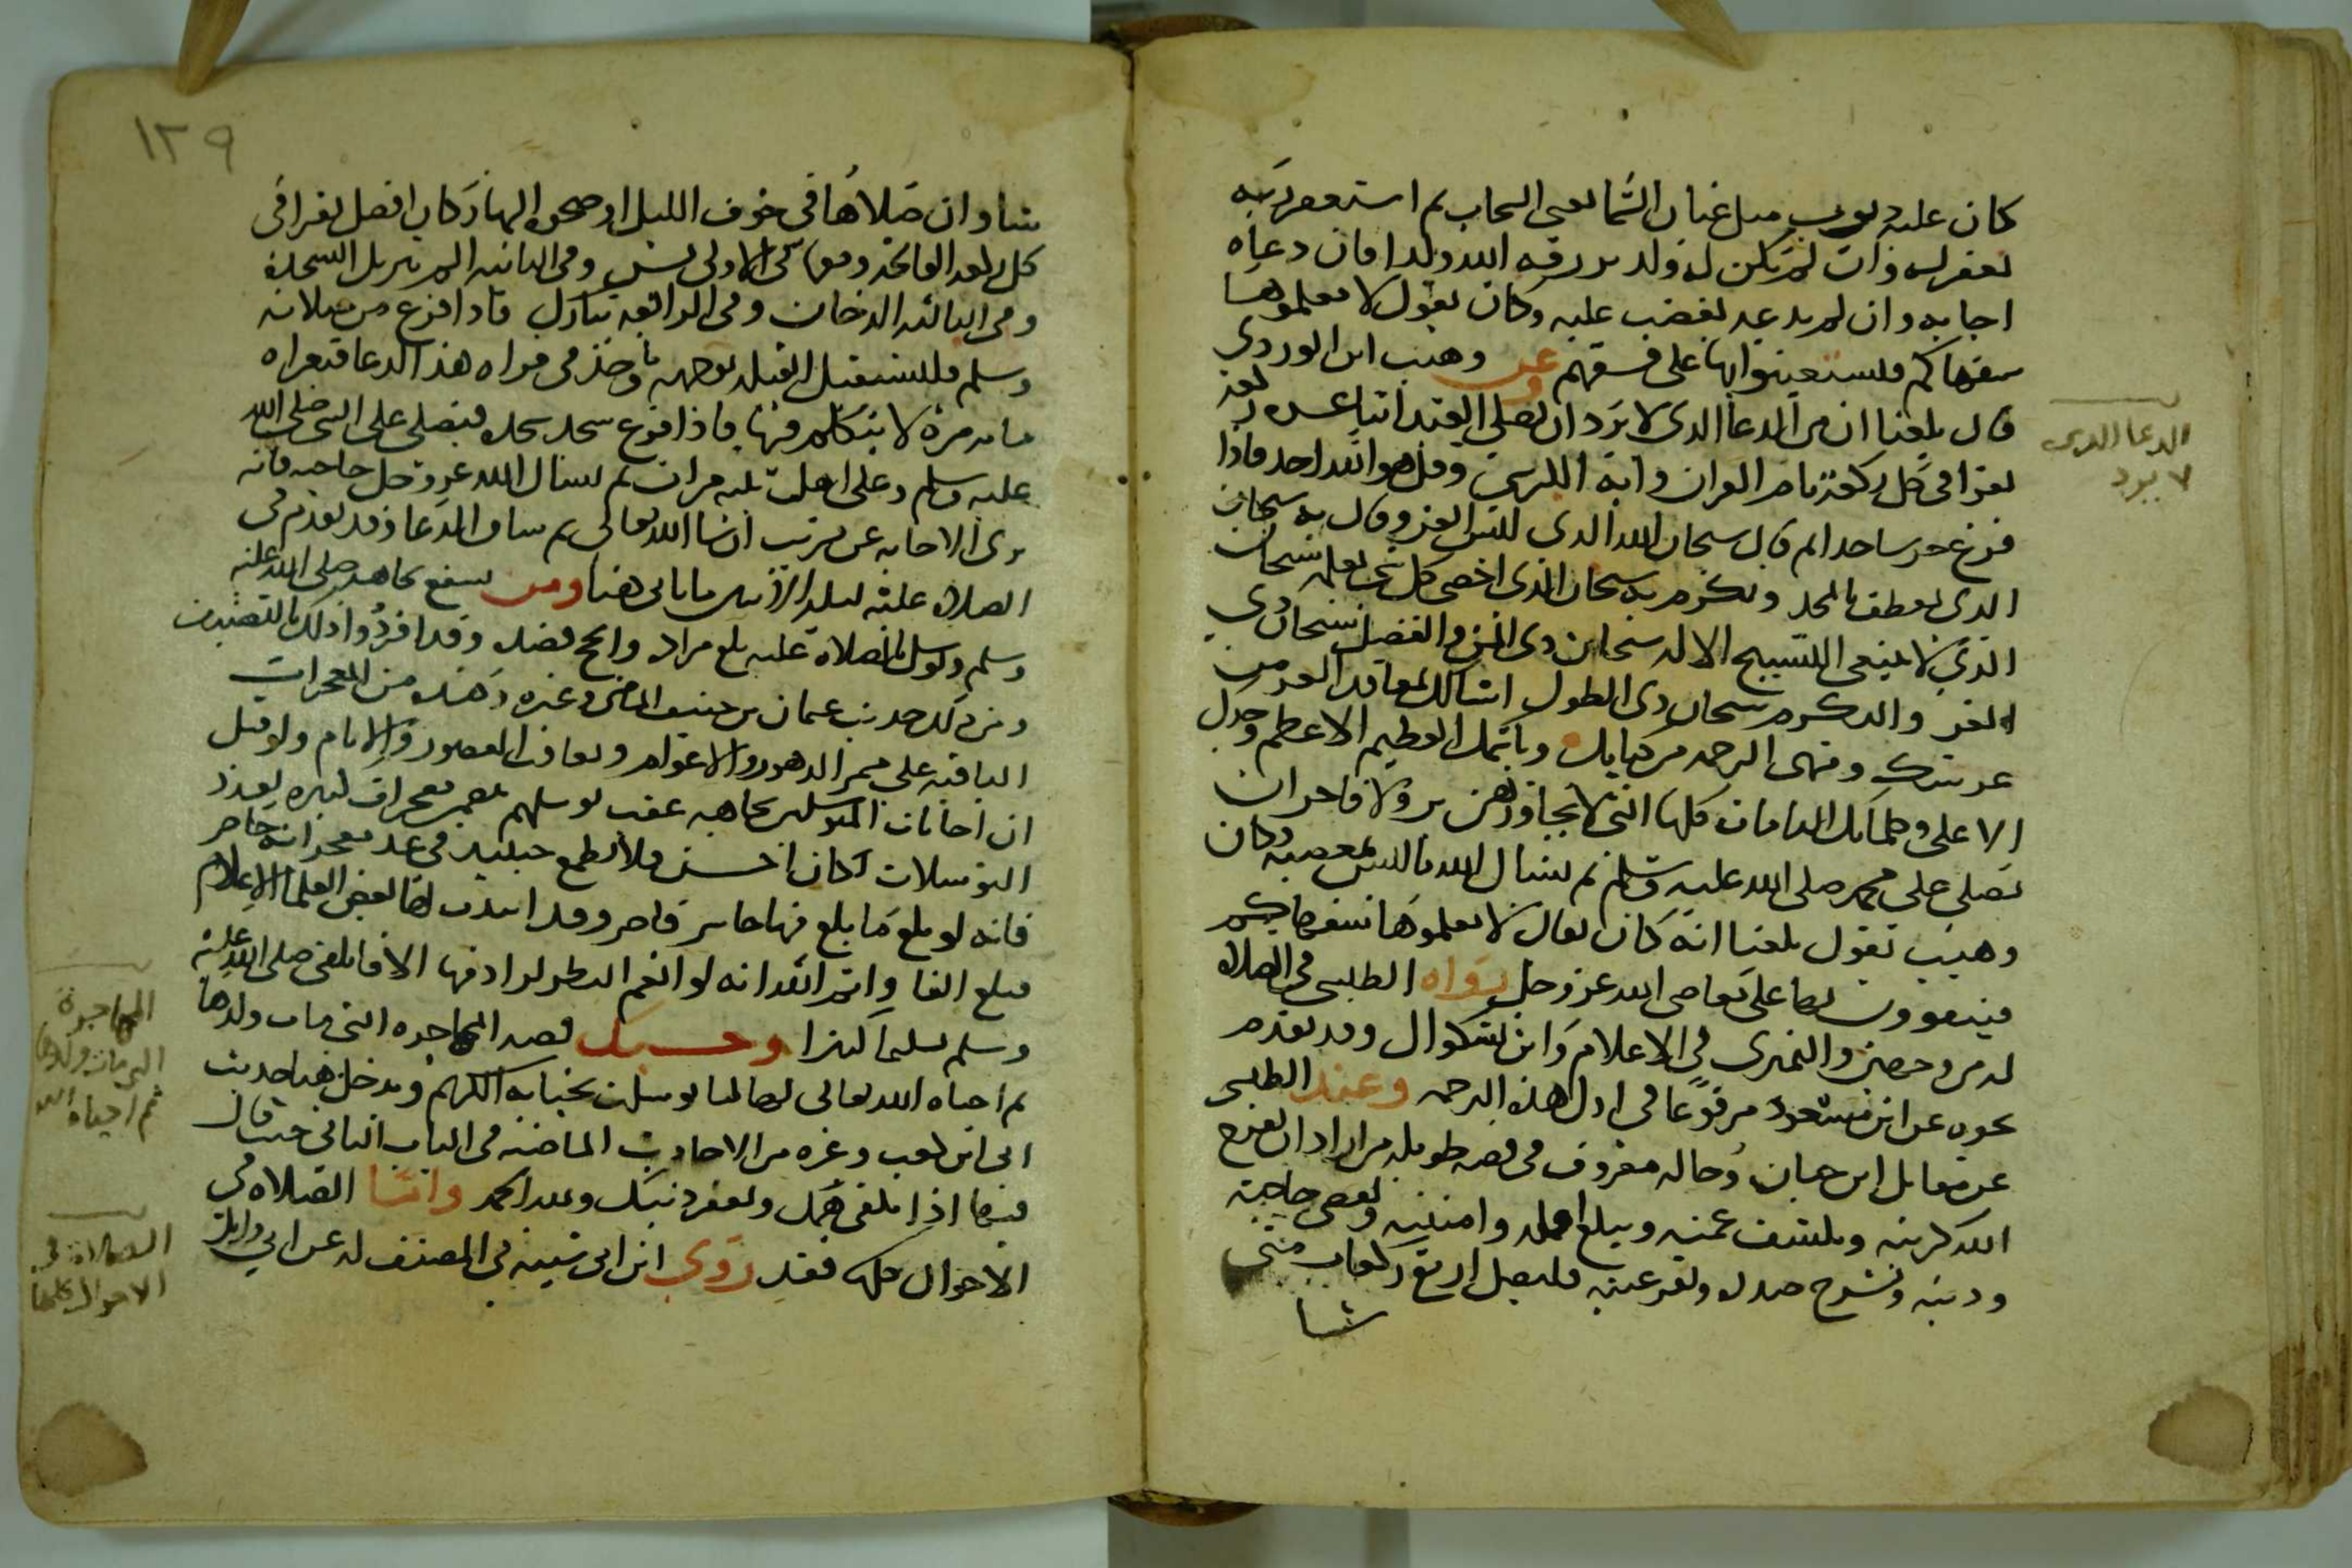 كان عليه ذنوب مثل عنان السما يعني السحاب ثم استغفر ربه
لغفر له وان لم يكن له ولد يرزقه الله ولدا فان دعاه
اجابه وان لم يدعه يغضب عليه وكان يقول لا تعلموها
سفهاكم فيستعينوا بها على فسقهم وعن وهيب ابن الورد
قال بلغنا ان من الدعا الذي لا يرد ان يصلي العبد اثنا عشر ركعة
يقرا في كل ركعة بام القران واية الكرسي وقل هو الله احد فاذا
فرغ خر ساجدا ثم قال سبحان الله الذي لبس العز وقال به سبحان
الذي تعطف بالمجد وتكرم به سبحان الذي احصى كل شي بعلمه سبحان
الذي لا ينبغي التسبيح الا له سبحان ذي المن والفضل سبحان ذي
العز والتكرم سبحان ذي الطول اسالك بمعاقد العز من
عرشك ومنتهى الرحمة من كتابك وباسمك العظيم الاعظم وجدك
الاعلى وكلماتك التامات كلها التي لا يجاوزهن بر ولا فاجر ان
تصلي على محمد صلى الله عليه وسلم ثم يسال الله ما ليس بمعصية وكان
وهيب يقول بلغنا انه كان يقال لا تعلموها سفهاكم
فيتقوون بها على معاصي الله عز وجل رواه الطبسي في الصلاة
له من وجهين والنميري في الاعلام وابن بشكوال وقد تقدم
نحوه عن ابن مسعود مرفوعا في اول هذه الترجمة وعند الطبسي
عن مقاتل ابن حيان وحاله معروف في قصة طويلة من اراد ان يفرج
الله كربته ويكشف غمته ويبلغ امله وامنيته ويقضي حاجته
ودينه ويشرح صدره ويقر عينه فليصل اربع ركعات متى
شا
الدعا الذي
لا يرد
١٣٩
شا وان صلاها في جوف الليل او ضحوة النهار كان افضل يقرا في
كل ركعة الفاتحة ومعها في الاولى يس وفي الثانية الم تنزيل السجدة
وفي الثالثة الدخان وفي الرابعة تبارك فاذا فرغ من صلاته
وسلم فليستقبل القبلة بوجهه وياخذ في قراة هذا الدعا فيقراه
ماية مرة لا يتكلم فيها فاذا فرغ سجد سجدة فيصلي على النبي صلى الله
عليه وسلم وعلى اهل بيته مرات ثم يسال الله عز وجل حاجته فانه
يرى الاجابة عن قريب ان شا الله تعالى ثم ساق الدعا وقد تقدم في
الصلاة عليه ليلة الاثنين ما ياتي هنا ومن يشفع بجاهه صلى الله عليه
وسلم وتوسل بالصلاة عليه بلغ مراده وانجح قصده وقد افردوا ذلك بالتصنيف
ومن ذلك حديث عثمان بن حنيف الماضي وغيره وهذه من المعجزات
الباقية على ممر الدهور والاعوام وتعاقب العصور والايام ولو قيل
ان اجابات المتوسلين بجاهه عقب توسلهم يتضمن معجزات كثيرة بعدد
التوسلات لكان احسن فلا يطمع حينئذ في عد معجزاته حاصر
فانه لو بلغ ما بلغ فيها حاسر قاصر وقد انتدب لها بعض العلما الاعلام
فبلغ الفا وايم الله انه لو انعم النظر لزاد فيها الافا تلفى صلى الله عليه
وسلم تسليما كثيرا وحسبك قصة المهاجرة التي مات ولدها
ثم احياه الله تعالى لها لما توسلت بجنابه الكريم ويدخل هنا حديث
ابي ابن كعب وغيره من الاحاديث الماضية في الباب الثاني حيث قال
فيها اذا تكفى همك ويغفر ذنبك ولله الحمد واما الصلاة في
الاحوال كلها فقد روي ابن ابي شيبة في المصنف له عن ابي وايل
المهاجرة
التي مات ولدها
ثم احياه الله
الصلاة في
الاحوال كلها